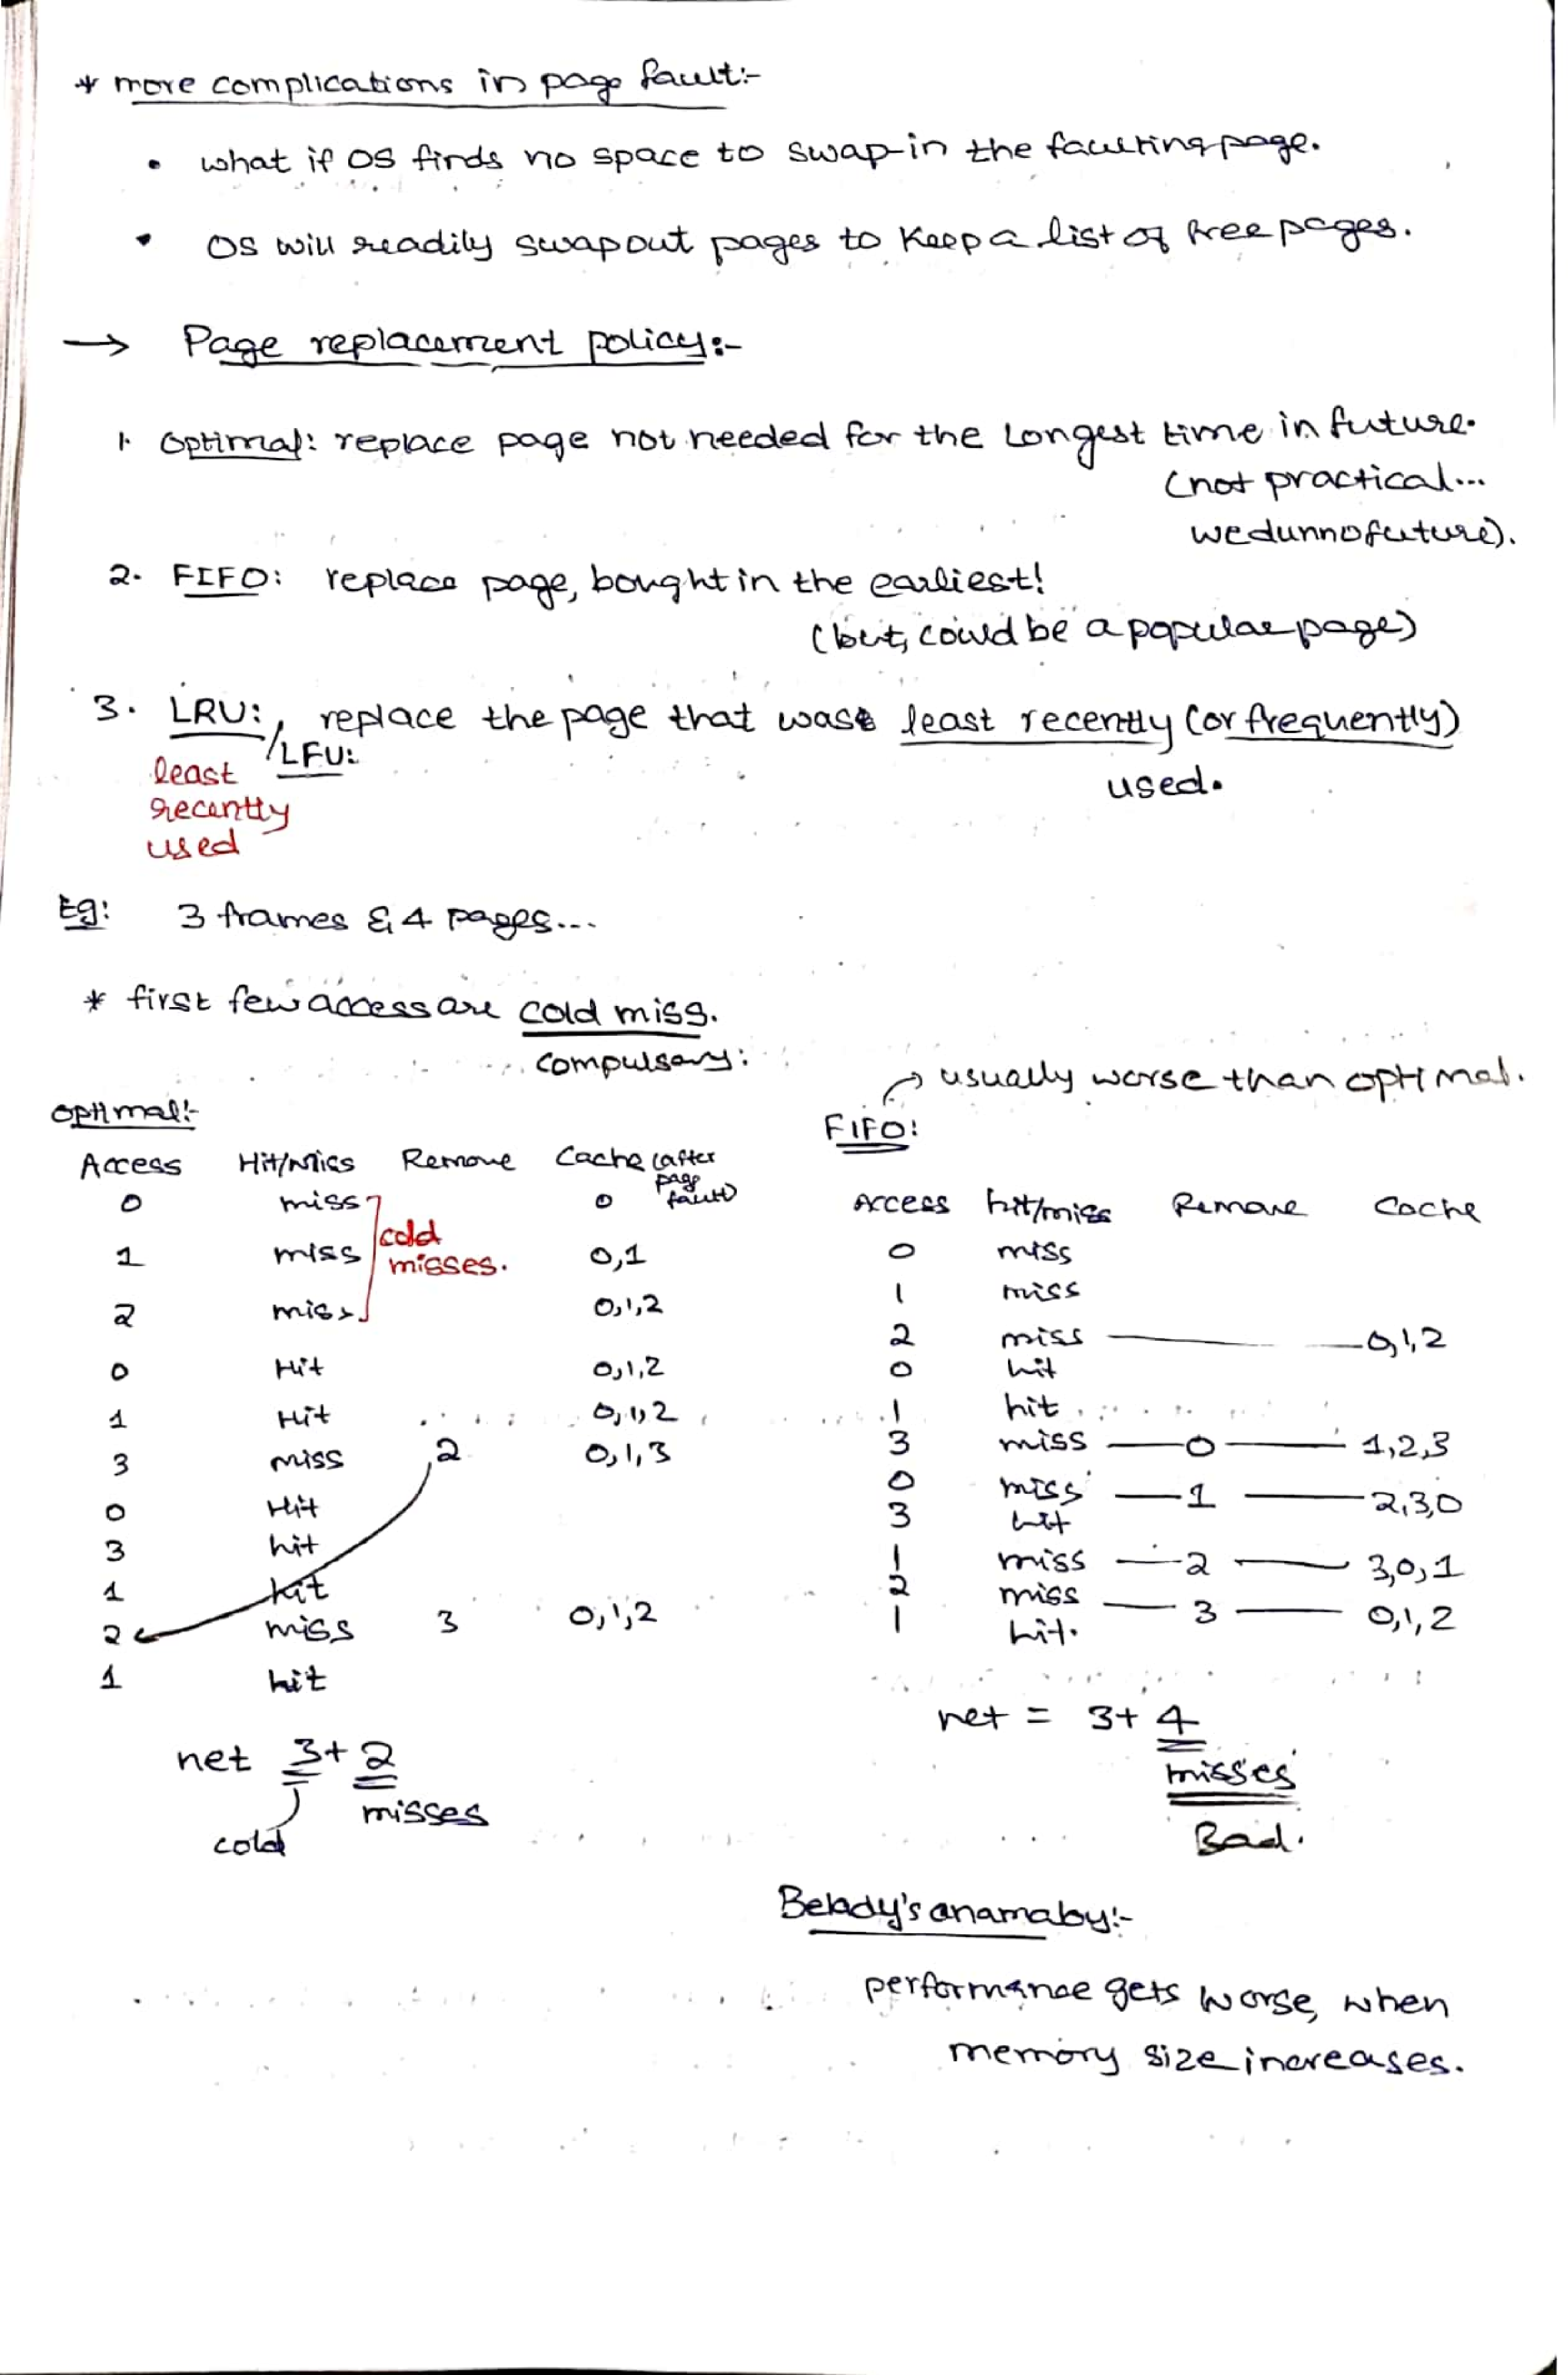 * more complications in page fault:-
• what if OS finds no space to swap-in the faulting page.
• OS will readily swap out pages to keep a list of free pages.
→ Page replacement policy:-
1. Optimal: replace page not needed for the longest time in future.
(not practical...
we dunno future).
2. FIFO: replace page, bought in the earliest!
(but, could be a popular page)
3. LRU: replace the page that was least recently (or frequently)
/LFU:
used.
least
recently
used
Eg: 3 frames & 4 pages...
* first few access are cold miss.
compulsory:
→ usually worse than optimal.
Optimal:-
Access Hit/Miss Remove Cache (after
page
fault)
0 miss 0
cold
misses.
1 miss 0,1
2 miss 0,1,2
0 Hit 0,1,2
1 Hit 0,1,2
3 miss 2 0,1,3
0 Hit
3 hit
1 hit
2 miss 3 0,1,2
1 hit
net 3+2
misses
cold
FIFO:
Access hit/miss Remove Cache
0 miss
1 miss
2 miss — 0,1,2
0 hit
1 hit
3 miss — 0 — 1,2,3
0 miss — 1 — 2,3,0
3 hit
1 miss — 2 — 3,0,1
2 miss — 3 — 0,1,2
1 hit.
net = 3+4
misses
Bad.
Belady's anamaby:-
performance gets worse, when
memory size increases.